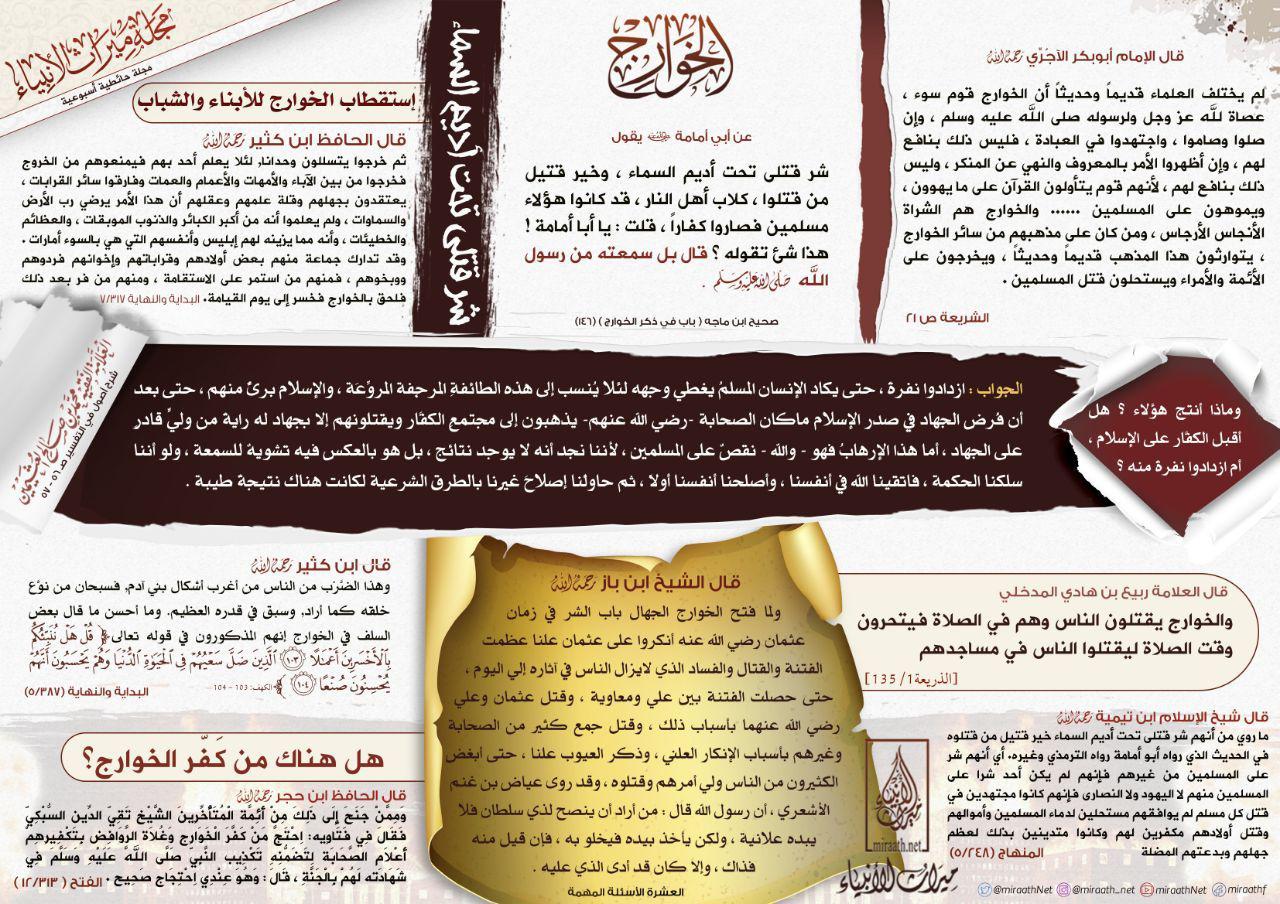 مجلة ميراث الأنبياء
مجلة حائطية أسبوعية
الخوارج
شر قتلى تحت أديم السماء
قال الإمام أبوبكر الآجُرِّي رحمه الله
لم يختلف العلماء قديماً وحديثاً أن الخوارج قوم سوء ،
عصاة لله عز وجل ولرسوله صلى الله عليه وسلم ، وإن
صلوا وصاموا ، واجتهدوا في العبادة ، فليس ذلك بنافع
لهم ، وإن أظهروا الأمر بالمعروف والنهي عن المنكر ، وليس
ذلك بنافع لهم ، لأنهم قوم يتأولون القرآن على ما يهوون ،
ويموهون على المسلمين ...... والخوارج هم الشراة
الأنجاس الأرجاس ، ومن كان على مذهبهم من سائر الخوارج
، يتوارثون هذا المذهب قديماً وحديثاً ، ويخرجون على
الأئمة والأمراء ويستحلون قتل المسلمين .
الشريعة ص ٢١
عن أبي أمامة رضي الله عنه يقول
شر قتلى تحت أديم السماء ، وخير قتيل
من قتلوا ، كلاب أهل النار ، قد كانوا هؤلاء
مسلمين فصاروا كفاراً ، قلت : يا أبا أمامة !
هذا شئ تقوله ؟ قال بل سمعته من رسول
الله صلى الله عليه وسلم .
صحيح ابن ماجه ( باب في ذكر الخوارج ) (١٤٦)
إستقطاب الخوارج للأبناء والشباب
قال الحافظ ابن كثير رحمه الله
ثم خرجوا يتسللون وحدانا, لئلا يعلم أحد بهم فيمنعوهم من الخروج
فخرجوا من بين الآباء والأمهات والأعمام والعمات وفارقوا سائر القرابات ،
يعتقدون بجهلهم وقلة علمهم وعقلهم أن هذا الأمر يرضي رب الأرض
والسماوات ، ولم يعلموا أنه من أكبر الكبائر والذنوب الموبقات ، والعظائم
والخطيئات ، وأنه مما يزينه لهم إبليس وأنفسهم التي هي بالسوء أمارات .
وقد تدارك جماعة منهم بعض أولادهم وقراباتهم وإخوانهم فردوهم
ووبخوهم ، فمنهم من استمر على الاستقامة ، ومنهم من فر بعد ذلك
فلحق بالخوارج فخسر إلى يوم القيامة. البداية والنهاية ٧/٣١٧
وماذا أنتج هؤلاء ؟ هل
أقبل الكفّار على الإسلام ،
أم ازدادوا نفرة منه ؟
الجواب : ازدادوا نفرة ، حتى يكاد الإنسان المسلمُ يغطي وجهه لئلا يُنسب إلى هذه الطائفةِ المرجفة المروِّعَة ، والإسلام برئٌ منهم ، حتى بعد
أن فرض الجهاد في صدر الإسلام ماكان الصحابة -رضي الله عنهم- يذهبون إلى مجتمع الكفّار ويقتلونهم إلا بجهاد له راية من وليِّ قادر
على الجهاد ، أما هذا الإرهابُ فهو - والله - نقصٌ على المسلمين ، لأننا نجد أنه لا يوجد نتائج ، بل هو بالعكس فيه تشوية للسمعة ، ولو أننا
سلكنا الحكمة ، فاتقينا الله في أنفسنا ، وأصلحنا أنفسنا أولا ، ثم حاولنا إصلاح غيرنا بالطرق الشرعية لكانت هناك نتيجة طيبة .
العلامة الفقيه محمد بن صالح العثيمين
شرح أصول في التفسير ص ٥٦ - ٥٧
قال العلامة ربيع بن هادي المدخلي
والخوارج يقتلون الناس وهم في الصلاة فيتحرون
وقت الصلاة ليقتلوا الناس في مساجدهم
[الذريعة1/ 135]
قال الشيخ ابن باز رحمه الله
ولما فتح الخوارج الجهال باب الشر في زمان
عثمان رضي الله عنه أنكروا على عثمان علنا عظمت
الفتنة والقتال والفساد الذي لايزال الناس في آثاره إلى اليوم ،
حتى حصلت الفتنة بين علي ومعاوية ، وقتل عثمان وعلي
رضي الله عنهما بأسباب ذلك ، وقتل جمع كثير من الصحابة
وغيرهم بأسباب الإنكار العلني ، وذكر العيوب علنا ، حتى أبغض
الكثيرون من الناس ولي أمرهم وقتلوه ، وقد روى عياض بن غنم
الأشعري ، أن رسول الله قال : من أراد أن ينصح لذي سلطان فلا
يبده علانية ، ولكن يأخذ بيده فيخلو به ، فإن قيل منه
فذاك ، وإلا كان قد أدى الذي عليه .
العشرة الأسئلة المهمة
قال ابن كثير رحمه الله
وهذا الضَرْب من الناس من أغرب أشكال بني آدم, فسبحان من نوَّع
خلقه كما أراد, وسبق في قدره العظيم. وما أحسن ما قال بعض
السلف في الخوارج إنهم المذكورون في قوله تعالى ﴿ قُلْ هَلْ نُنَبِّئُكُم
بِالْأَخْسَرِينَ أَعْمَالًا (١٠٣) الَّذِينَ ضَلَّ سَعْيُهُمْ فِي الْحَيَاةِ الدُّنْيَا وَهُمْ يَحْسَبُونَ أَنَّهُمْ
يُحْسِنُونَ صُنْعًا (١٠٤) ﴾ الكهف: ١٠٣ - ١٠٤ البداية والنهاية (٥/٣٨٧)
قال شيخ الإسلام ابن تيمية رحمه الله
ما روي من أنهم شر قتلى تحت أديم السماء خير قتيل من قتلوه
في الحديث الذي رواه أبو أمامة رواه الترمذي وغيره. أي أنهم شر
على المسلمين من غيرهم فإنهم لم يكن أحد شرا على
المسلمين منهم لا اليهود ولا النصارى فإنهم كانوا مجتهدين في
قتل كل مسلم لم يوافقهم مستحلين لدماء المسلمين وأموالهم
وقتل أولادهم مكفرين لهم وكانوا متدينين بذلك لعظم
جهلهم وبدعتهم المضلة المنهاج (٥/٢٤٨)
هل هناك من كَفّر الخوارج؟
قال الحافظ ابن حجر رحمه الله
وَمِمَّنْ جَنَحَ إِلَى ذَلِكَ مِنْ أَئِمَّةِ الْمُتَأَخِّرِينَ الشَّيْخُ تَقِيُّ الدِّينِ السُّبْكِيُّ
فَقَالَ فِي فَتَاوِيهِ: اِحْتَجَّ مَنْ كَفَّرَ الْخَوَارِجَ وَغُلَاةَ الرَّوَافِضِ بِتَكْفِيرِهِمْ
أَعْلَامَ الصَّحَابَةِ لِتَضَمُّنِهِ تَكْذِيبَ النَّبِيِّ صَلَّى اللَّهُ عَلَيْهِ وَسَلَّمَ فِي
شَهَادَتِهِ لَهُمْ بِالْجَنَّةِ ، قَالَ : وَهُوَ عِنْدِي اِحْتِجَاجٌ صَحِيحٌ . الفتح ( ١٢/٣١٣)
ميراث الأنبياء
miraath.net
ميراث الأنبياء
@miraathNet @miraath_net miraathNet miraathf